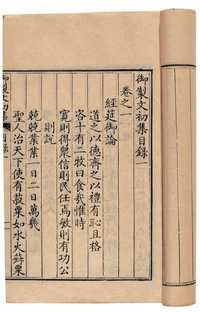 御製文初集目錄
卷之一
經筵御論
道之以德齊之以禮有恥且格
咨十有二牧曰食哉惟時
寬則得衆信則民任焉敏則有功公
則說
兢兢業業一日二日萬幾
聖人治天下使有菽粟如水火菽粟
御製文初集